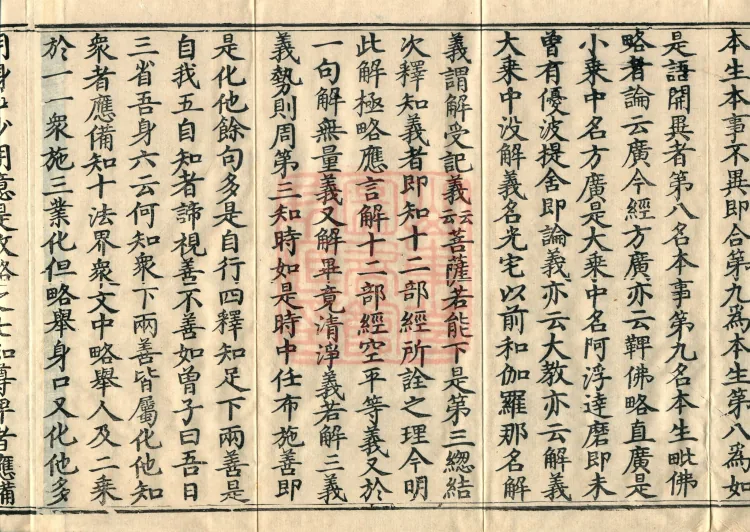 本生本事不異即合第九爲本生第八為如
是語開異者第八名本事第九名本生毗佛
略者論云廣今經方廣亦云鞞佛略直廣是
小乗中名方廣是大乗中名阿浮達磨即未
曾有優波提舍即論義亦云大教亦云解義
大乗中没解義名光宅以前和伽羅那名解
義謂解受記義云云菩薩若能下是第三總結
次釋知義者即知十二部經所詮之理今明
此解極略應言解十二部經空平等義又於
一句解無量義又解畢竟清淨義若解三義
義勢則周第三知時如是時中任布施善即
是化他餘句多是自行四釋知足下兩善是
自我五自知者諦視善不善如曾子曰吾日
三省吾身六云何知衆下兩善皆屬化他知
衆者應備知十法界衆文中略舉人及二乗
於一一衆施三業化但略舉身口又化他多
用身口少用意是故略之七知尊卑者應備